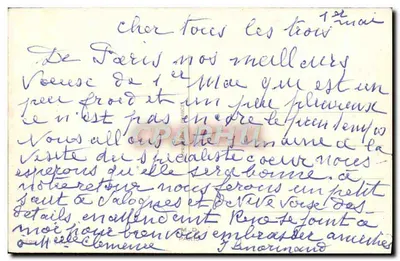 1er mai
cher tous les trois
De Paris nos meilleurs
Voeux de 1er Mai qui est un
peu froid et un peu pluvieux
ce n'est pas encore le printemps
Nous allons cette semaine a la
visite du spécialiste coeur nous
esperons qu'elle sera bonne. a
notre retour nous ferons un petit
saut à Valognes et de Vive Voix des
details. en attendant se joint a
moi pour bien vous embrasser amitiés
a Melle Clemence Lenormand